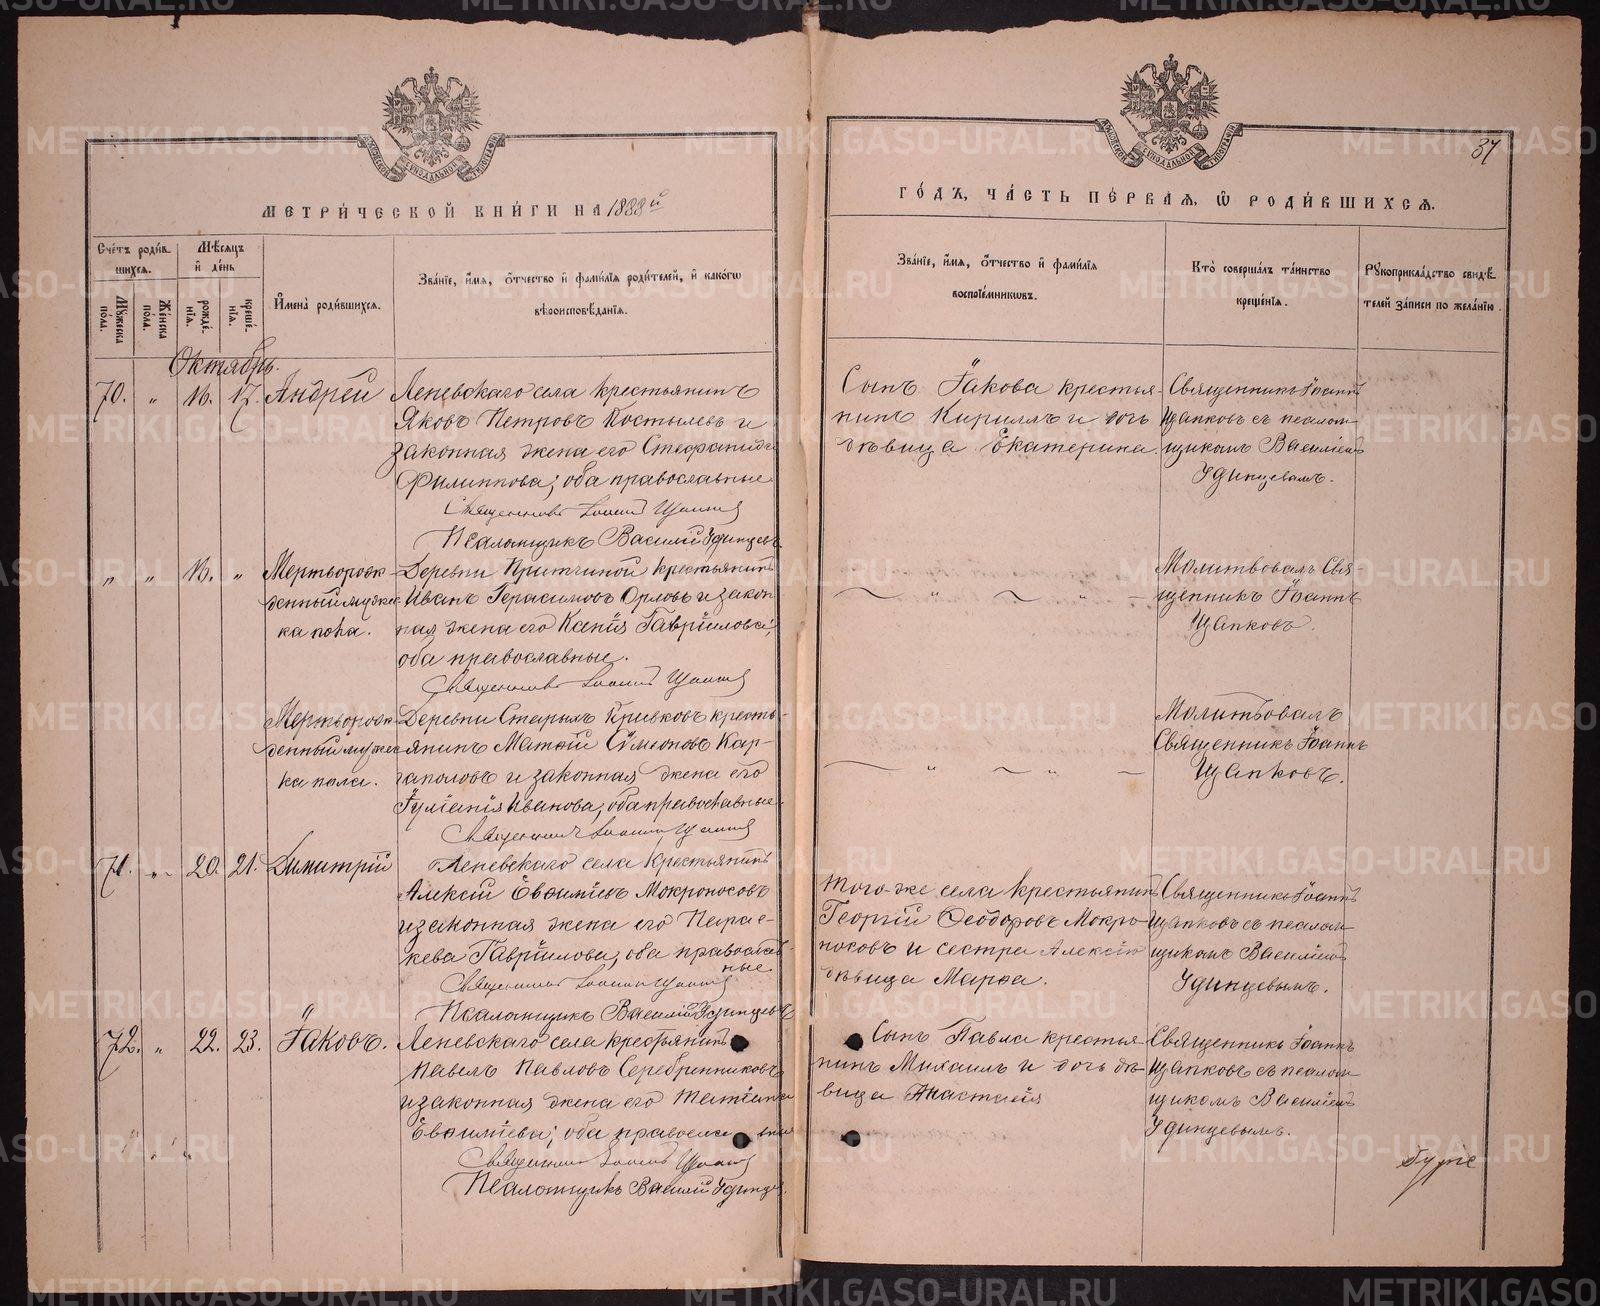 МЕТРИ́ЧЕСКОЙ КНИ́ГИ НА 1888й
ГО́ДЪ, ЧА́СТЬ ПЕ́РВАѦ, Ѿ РОДИ́ВШИХСѦ.
37
Сче́тъ роди́в
шихсѧ.
Мѣ́сѧцъ
и́ де́нь
Мꙋжеска
пола.
Же́нска
пола.
рожде́
нїѧ.
креще́
нїѧ.
И҆мена̀ роди́вшихсѧ.
Зва́нїе, и҆́мѧ, ѻ҆́тчество и҆ фами́лїѧ роди́телей, и҆ како́гѡ
вѣроисповѣ́данїѧ.
Зва́нїе, и҆́мѧ, ѻ҆́тчество и҆ фами́лїѧ
воспрїе́мникѡвъ.
Кто̀ соверша́лъ та́инство
креще́нїѧ.
Рꙋкоприкла́дство свидѣ́
телей за́писи по жела́нїю.
Октябрь.
70. " 16. 17. Андрей
Леневскаго села крестьянинъ
Яковъ Петровъ Костылевъ и
законная жена его Стефанида
Филиппова; оба православные
Священникъ Іоаннъ Щапковъ
Псаломщикъ Василій Удинцевъ
Сынъ Іакова крестья-
нинъ Кириллъ и дочь
дѣвица Екатерина.
Священникъ Іоаннъ
Щапковъ съ псалом-
щикомъ Василіемъ
Удинцевымъ.
" " 16. " Мертворож-
денный мужес-
ка пола.
Деревни Притчиной крестьянинъ
Иванъ Герасимовъ Орловъ и закон
ная жена его Ксенія Гавріилова;
оба православные.
Священникъ Іоаннъ Щапковъ
" "
Молитвовалъ Свя-
щенникъ Іоаннъ
Щапковъ.
Мертворож-
денный мужес-
ка пола.
Деревни Старыхъ Кривковъ кресть-
янинъ Матѳій Сѵмеоновъ Кар-
гаполовъ и законная жена его
Іуліанія Иванова; оба православные
Священникъ Іоаннъ Щапковъ
" "
Молитвовалъ
Священникъ Іоаннъ
Щапковъ.
71. " 20. 21. Димитрій
Леневскаго села крестьянинъ
Алексій Евѳиміевъ Мокроносовъ
и законная жена его Парас-
кева Гавріилова; оба православ
ные
Священникъ Іоаннъ Щапковъ
Псаломщикъ Василій Удинцевъ
Того-же села крестьянинъ
Георгій Ѳеодоровъ Мокро-
носовъ и сестра Алексію
дѣвица Марѳа.
Священникъ Іоаннъ
Щапковъ съ псалом-
щикомъ Василіемъ
Удинцевымъ.
72. " 22. 23. Іаковъ.
Леневскаго села крестьянинъ
Павелъ Павловъ Серебренниковъ
и законная жена его Татіана
Евѳиміева; оба православные
Священникъ Іоаннъ Щапковъ
Псаломщикъ Василій Удинцевъ
Сынъ Павла крестья-
нинъ Михаилъ и дочь дѣ-
вица Анастасія
Священникъ Іоаннъ
Щапковъ съ псалом-
щикомъ Василіемъ
Удинцевымъ.
METRIKI.GASO-URAL.RU